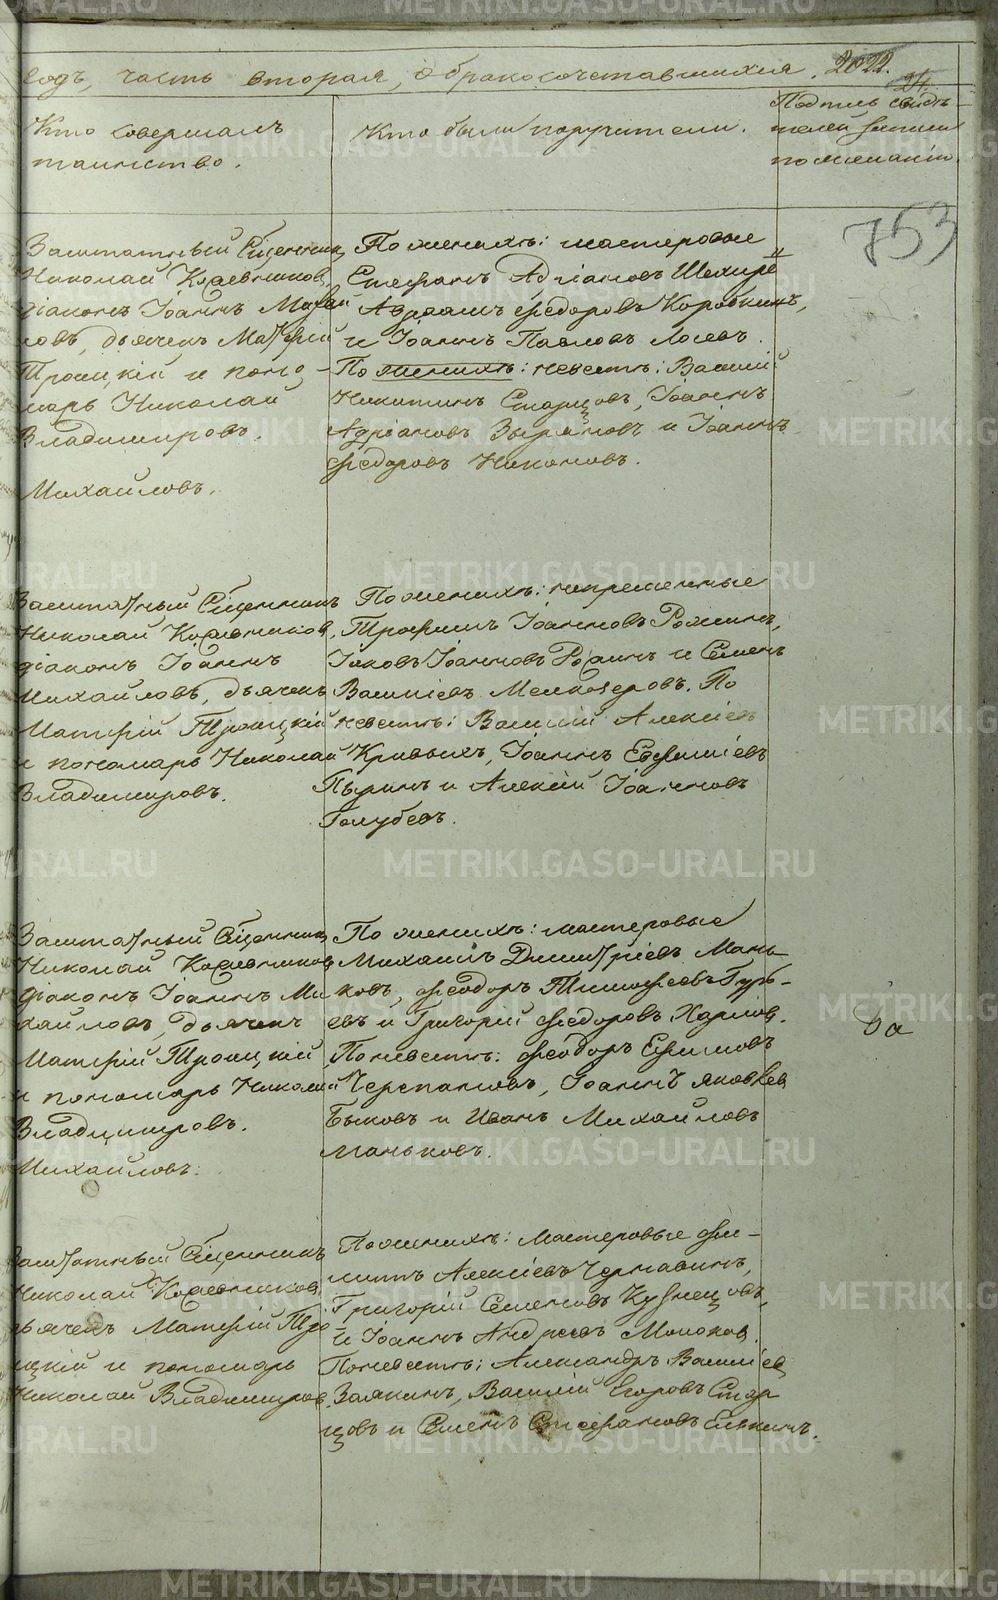 годъ, часть вторая, о бракосочетавшихся.
24.
Кто совершалъ
таинство.
Кто были поручители.
Подпись свидѣ-
телей записи
по желанію.
753
Заштатный Сщенникъ
Николай Кожевников,
діаконъ Іоаннъ Михай
ловъ, дьячекъ Матѳерій
Троицкій и поно-
марь Николай
Владимировъ.
Михайловъ.
По женихѣ: мастеровые
Стефанъ Адріановъ
Авраамъ Ѳедоровъ Коровкинъ,
и Іоаннъ Павловъ Лосевъ.
По женихѣ: невестѣ: Василій
Никитинъ Старцовъ, Іоаннъ
Адріановъ Зыряновъ и Іоаннъ
Ѳедоровъ Никоновъ.
Заштатный Сщенникъ
Николай Кожевников,
діаконъ Іоаннъ
Михайловъ, дьячекъ
Троицкій
и пономарь Николай
Владимировъ.
По женихѣ: непременные
Трофимъ Іоанновъ
Іаковъ Іоанновъ и Семенъ
Василіевъ Мелкозеровъ. По
невестѣ: Василій Алексіевъ
Кривыхъ, Іоаннъ
и Алексій Іоанновъ
Голубевъ.
Заштатный Сщенникъ
Николай Кожевников
діаконъ Іоаннъ Ми
хайловъ, дьячекъ
Троицкій
и пономарь Николай
Владимировъ.
Михайловъ.
По женихѣ: мастеровые
Михаилъ Димитріевъ Мань-
ковъ, Ѳеодоръ Тимоѳеевъ Гурь-
евъ и Григорій Ѳедоровъ Харлов.
По невестѣ: Ѳеодоръ Ефимовъ
Черепановъ, Іоаннъ Яковлев
Быковъ и Иванъ Михайловъ
Маньковъ.
ба
Заштатный Сщенникъ
Николай Кожевников,
дьячекъ Тро
ицкій и пономарь
Николай Владимиров.
По женихѣ: Мастеровые Фи-
липъ Алексіевъ
Григорій Семеновъ Кузнецовъ,
и Іоаннъ Андреевъ
По невестѣ: Александръ Василіев
Заякинъ, Василій Егоровъ Стар
цовъ и Семенъ Стефановъ Елькинъ.
METRIKI.GASO-URAL.RU